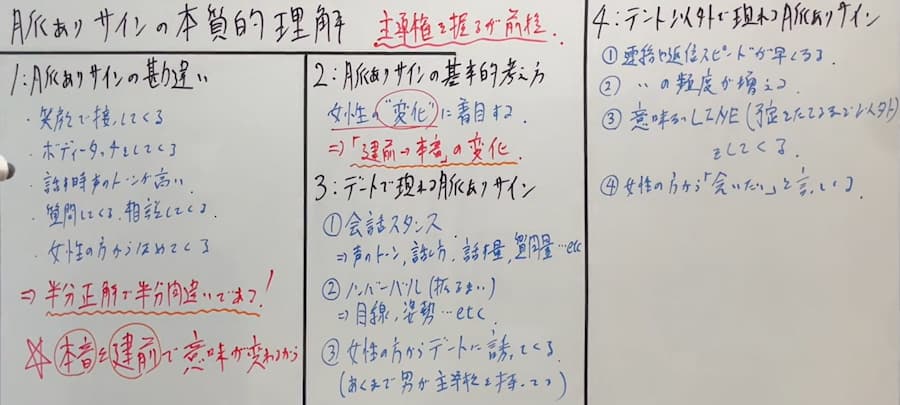 脈ありサインの本質的理解
主導権を握るが前提.
1:脈ありサインの勘違い
・笑顔で接してくる
・ボディータッチをしてくる
・話す時声のトーンが高い
・質問してくる.相談してくる
・女性の方からほめてくる
⇒半分正解で半分間違いである!
☆本音と建前で意味が変わるから
2:脈ありサインの基本的考え方
女性の"変化"に着目する
⇒「建前→本音」の変化
3:デートで現れる脈ありサイン
①会話スタンス
⇒声のトーン,話し方,話す量,質問量…etc
②ノンバーバル(振るまい)
⇒目線,姿勢…etc
③女性の方からデートに誘ってくる
(あくまで男が主導権を持ってつつ)
4:デート以外で現れる脈ありサイン
①連絡や返信スピードが早くなる
②〃の頻度が増える
③意味ないLINE(予定をたてるなど以外)
をしてくる.
④女性の方から「会いたい」と言ってくる